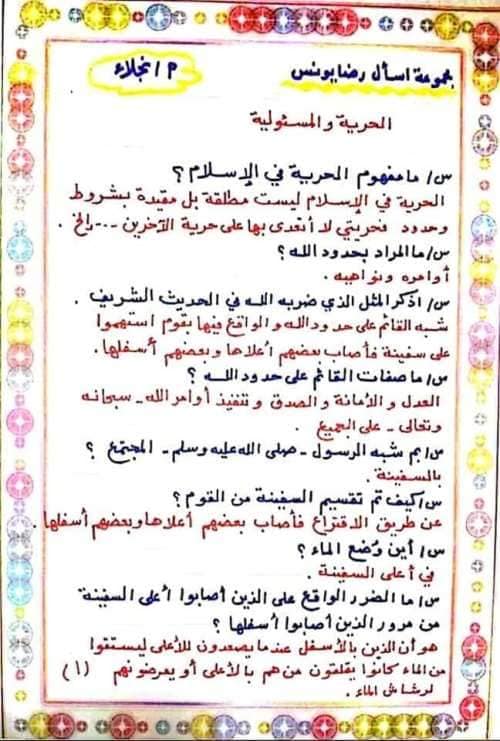 مجموعة اسأل رضا يونس
م / نجلاء
الحرية والمسئولية
س/ ما مفهوم الحرية في الإسلام ؟
الحرية في الإسلام ليست مطلقة بل مقيدة بشروط
وحدود فحريتي لا أتعدى بها على حرية الآخرين ... إلخ .
س/ ما المراد بحدود الله ؟
أوامره ونواهيه .
س/ اذكر المثل الذي ضربه الله في الحديث الشريف .
شبه القائم على حدود الله والواقع فيها بقوم استهموا
على سفينة فأصاب بعضهم أعلاها وبعضهم أسفلها .
س/ ما صفات القائم على حدود الله ؟
العدل والأمانة والصدق وتنفيذ أوامر الله - سبحانه
وتعالى - على الجميع .
س/ بم شبه الرسول - صلى الله عليه وسلم - المجتمع ؟
بالسفينة .
س/ كيف تم تقسيم السفينة من القوم ؟
عن طريق الاقتراع فأصاب بعضهم أعلاها وبعضهم أسفلها .
س/ أين وُضع الماء ؟
في أعلى السفينة .
س/ ما الضرر الواقع على الذين أصابوا أعلى السفينة
من مرور الذين أصابوا أسفلها ؟
هو أن الذين بالأسفل عندما يصعدون للأعلى ليستقوا
من الماء كانوا يقلقون من هم بالأعلى أو يعرضونهم (١)
لرشاش الماء .